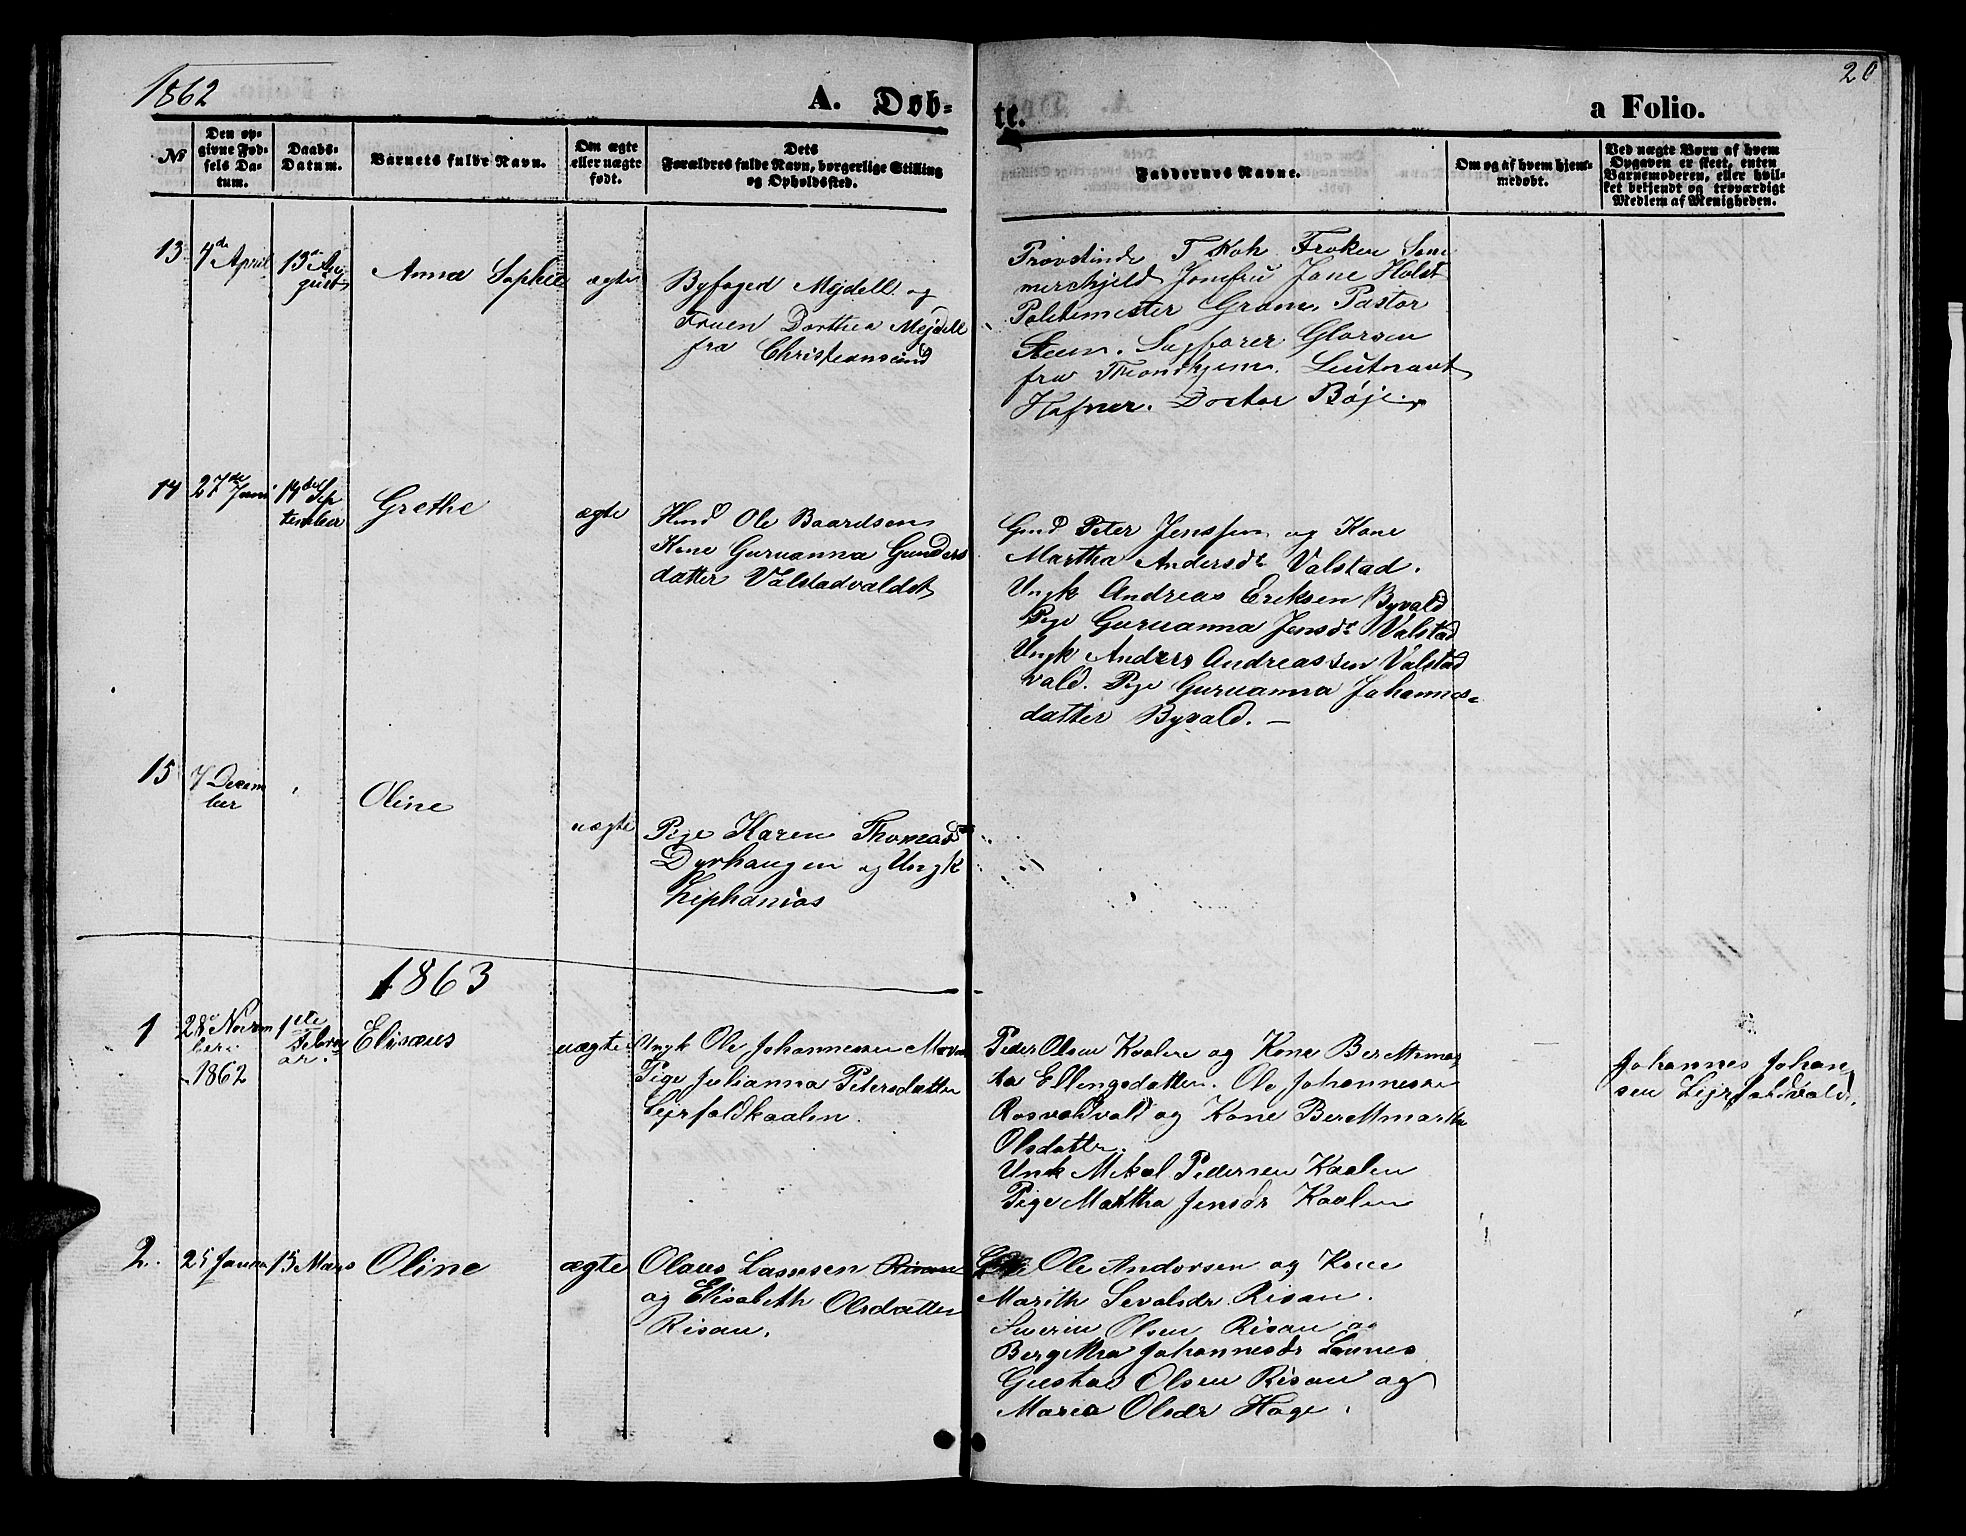 1862
A. Døb-
te.
a Folio.
20
No
Den op-
givne Fød-
sels Da-
tum.
Daabs-
Datum.
Barnets fulde Navn.
Om ægte
eller uægte
født.
Dets
Forældres fulde Navn, borgerlige Stilling
og Opholdssted.
Faddernes Navne.
Om og af hvem hjem-
medøbt.
Ved uægte Børn af hvem
Opgaven er skeet, enten
Barnemoderen, eller hvil-
ket bekjendt og troværdigt
Medlem af Menigheden.
13
4de April
13de Au
gust
Anna Sophie
ægte
Byfoged Mejdell og
Fruen Dorthea Mejdell
fra Christiansund
Provstinde Frøken Som
merchjeld Jomfru Jane Holst
Politimester Gram, Pastor
Steen. Sagfører
fra Trondhjem. Leutnant
Hafner. Doctor Bøje.
14
27de Juni
14de Sep
tember
Grethe
ægte
Hmd Ole Baardsen
Kone Guruanna Gunders
datter Valstadvaldet
Gmd Peter Jenssen og Kone
Martha Andersdt Valstad.
Ungk Andreas Eriksen Byvald
Pige Guruanna Jensdt Valstad
Ungk Anders Andreassen Valstad
vald. Pige Guruanna Johannes-
datter Byvald. —
15
7 Decem
ber
Oline
uægte
Pige Karen Thomasd
Dyrhaugen og Ungk
Zephanias
1863
1
28de Novem
ber
1862
1ste
Febru
ar.
Elisæus
uægte
Ungk Ole Johannessen
Pige Julianna Petersdatter
Lejrfoldkaalen.
Peder Olsen Kaalen og Kone Berethmar
ta Ellingsdatter. Ole Johannessen
Rosvoldvald og Kone Berethmartha
Olsdatter.
Ungk Mikal Pedersen Kaalen
Pige Martha Jensdr Kaalen
Johannes Johan
sen Lejrfoldvald.
2.
25 Januar
15 Mars
Oline
ægte
Olaus Lassesen Risan
og Elisabeth Olsdatter
Risan.
Ole Andersen og Kone
Marith Sevalsdr Risan.
Severin Olsen Risan og
Bergithra Johannesdr Lænnes
Gustav Olsen Risan og
Maria Olsdr Hage.